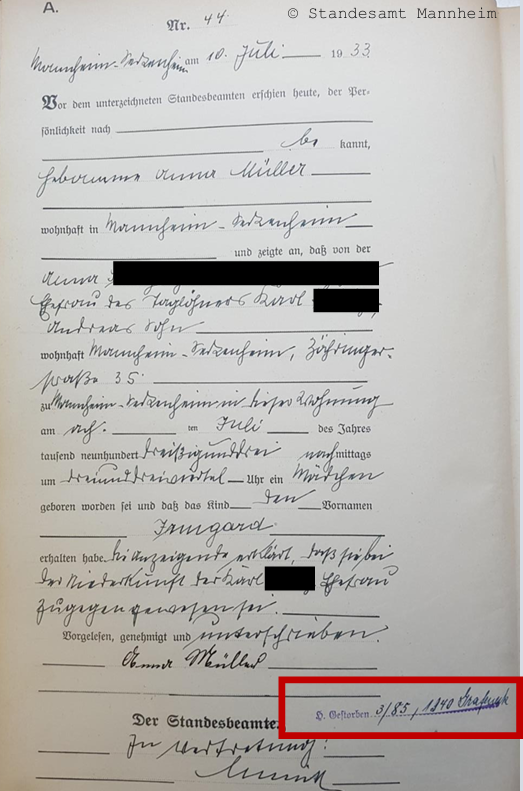 © Standesamt Mannheim
A.
Nr. 44
Mannheim-Seckenheim am 10. Juli 1933.
Vor dem unterzeichneten Standesbeamten erschien heute, der Per-
sönlichkeit nach
be kannt,
Hebamme Anna Müller
wohnhaft in Mannheim-Seckenheim
und zeigte an, daß von der
Anna
Ehefrau des Taglöhners Karl
Andreas Sohn
wohnhaft Mannheim-Seckenheim, Zähringer-
straße 35
zu Mannheim-Seckenheim in dieser Wohnung
am acht ten Juli des Jahres
tausend neunhundert dreißigunddrei nachmittags
um dreiunddreiviertel Uhr ein Mädchen
geboren worden sei und daß das Kind den Vornamen
Irmgard
erhalten habe. Die Anzeigende erklärt, daß sie bei
der Niederkunft der Karl Ehefrau
zugegen gewesen sei.
Vorgelesen, genehmigt und unterschrieben.
Anna Müller
H. Gestorben 3/85, 1840
Der Standesbeamte.
In Vertretung: